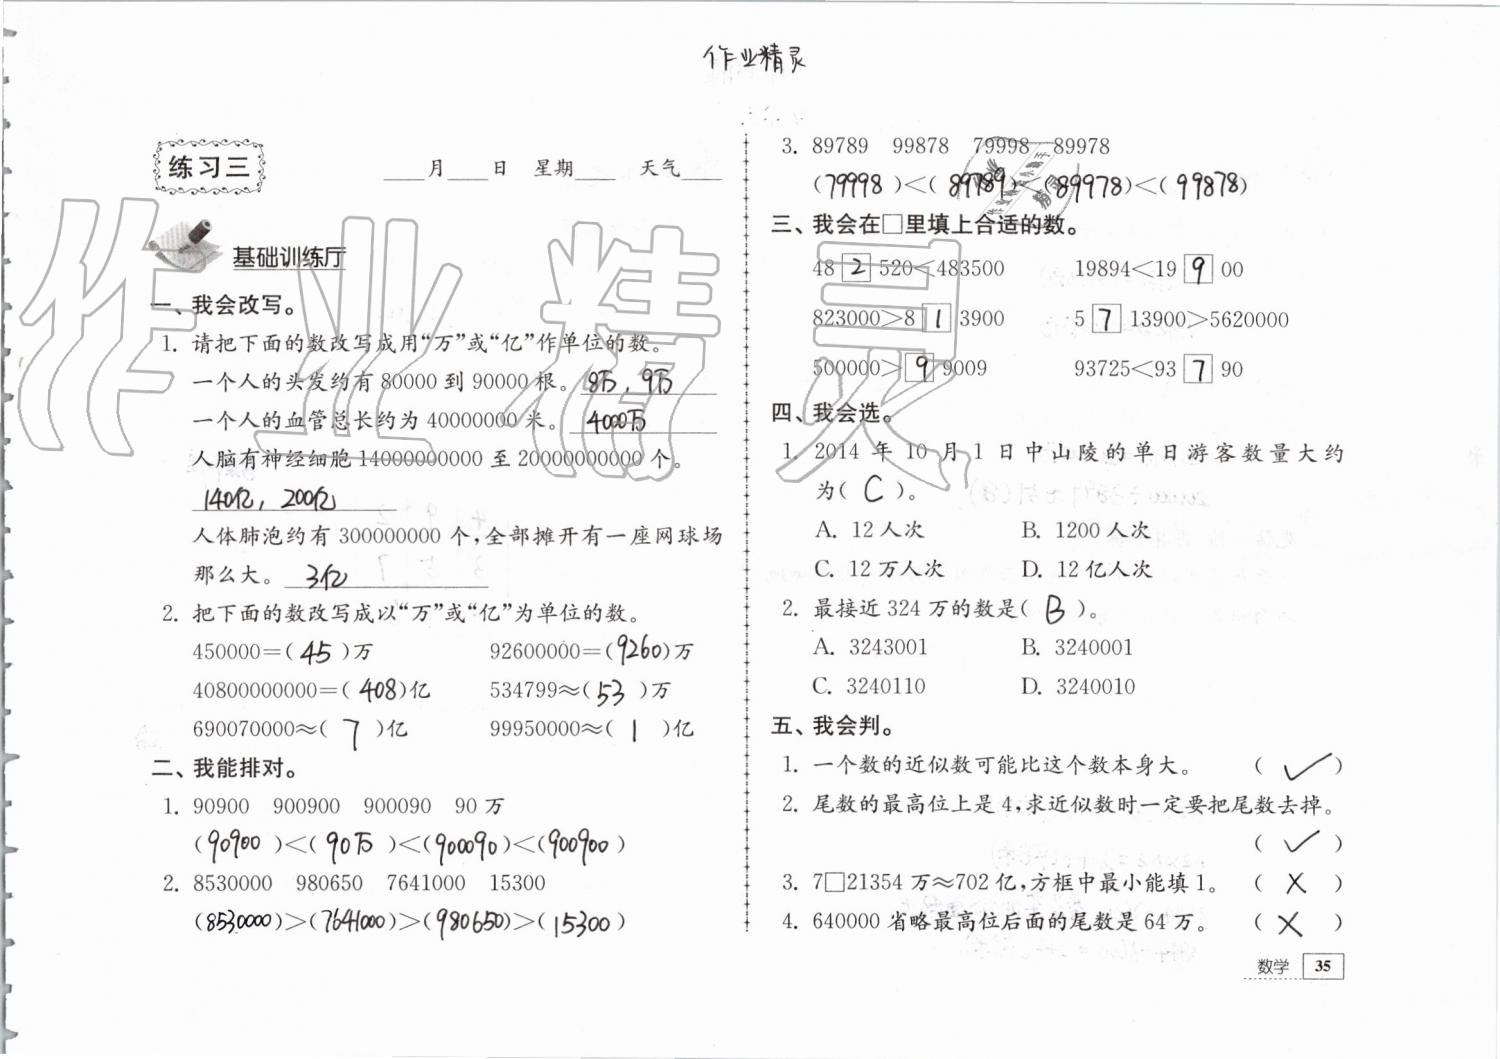 作业精灵
练习三
____月____日 星期____ 天气____
基础训练厅
一、我会改写。
1. 请把下面的数改写成用“万”或“亿”作单位的数。
一个人的头发约有 80000 到 90000 根。 8万，9万
一个人的血管总长约为 40000000 米。 4000万
人脑有神经细胞 14000000000 至 20000000000 个。
140亿，200亿
人体肺泡约有 300000000 个，全部摊开有一座网球场
那么大。 3亿
2. 把下面的数改写成以“万”或“亿”为单位的数。
450000=( 45 )万 92600000=(9260)万
40800000000=( 408)亿 534799≈(53 )万
690070000≈( 7 )亿 99950000≈( 1 )亿
二、我能排对。
1. 90900 900900 900090 90 万
(90900 )<( 90万 )<(900090)<(900900 )
2. 8530000 980650 7641000 15300
(8530000)>(7641000)>(980650)>( 15300 )
3. 89789 99878 79998 89978
(79998 )<( 89789 )<(89978)<( 99878)
三、我会在□里填上合适的数。
48 2 520<483500 19894<19 9 00
823000>8 1 3900 5 7 13900>5620000
500000> 9 9009 93725<93 7 90
四、我会选。
1. 2014 年 10 月 1 日中山陵的单日游客数量大约
为( C )。
A. 12 人次 B. 1200 人次
C. 12 万人次 D. 12 亿人次
2. 最接近 324 万的数是( B )。
A. 3243001 B. 3240001
C. 3240110 D. 3240010
五、我会判。
1. 一个数的近似数可能比这个数本身大。 ( ✓ )
2. 尾数的最高位上是 4，求近似数时一定要把尾数去掉。
( ✓ )
3. 7□21354 万≈702 亿，方框中最小能填 1。 ( × )
4. 640000 省略最高位后面的尾数是 64 万。 ( × )
数学 35
作业精灵